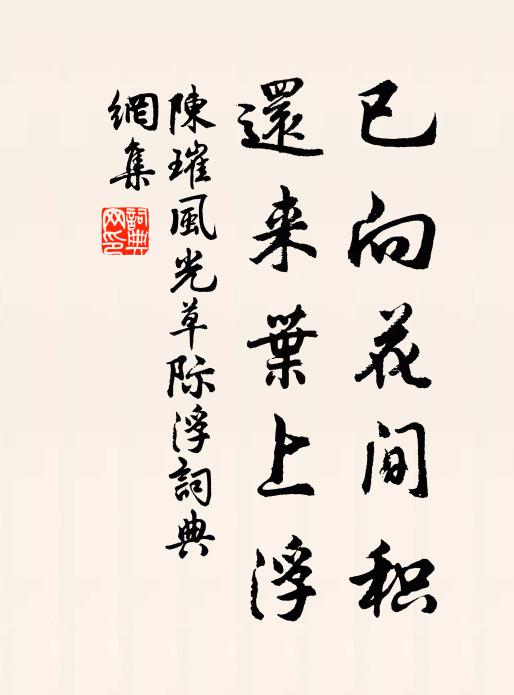 已向花间积
還来葉上浮
陳璀風光草际浮詞典
網集
詞典
网印